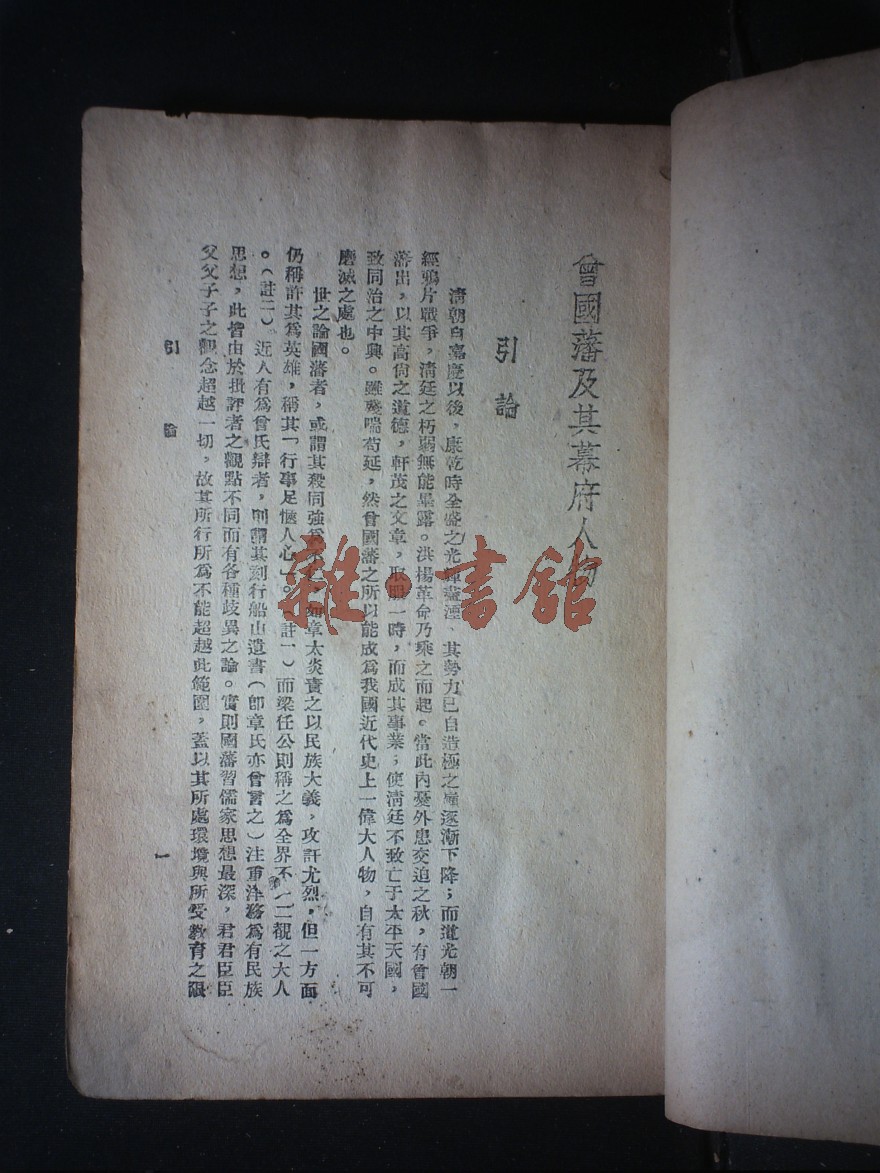 曾國藩及其幕府人物
引論
清朝自嘉慶以後，康乾時全盛之光輝 其勢力已自造極之 逐漸下降；而道光朝一
經鴉片戰爭，清廷之朽弱無能暴露。洪楊革命乃乘之而起。當此內憂外患交迫之秋，有曾國
藩出，以其高尚之道德，軒茂之文章，取 一時，而成其事業；使清廷不致亡于太平天國，
致同治之中興。雖殘喘苟延，然曾國藩之所以能成爲我國近代史上一偉大人物，自有其不可
磨滅之處也。
世之論國藩者，或謂其殺同強爲不 如章太炎責之以民族大義，攻訐尤烈，但一方面
仍稱許其爲英雄，稱其「行事足愜人心」。（註一）而梁任公則稱之爲全界不一二覩之大人
。（註二）近人有爲曾氏辯者，則謂其刻行船山遺書（卽章氏亦曾言之）注重洋務爲有民族
思想，此皆由於批評者之觀點不同而有各種歧異之論。實則國藩習儒家思想最深，君君臣臣
父父子子之觀念超越一切，故其所行所爲不能超越此範圍，蓋以其所處環境與所受敎育之限
引論
一
雜·書館